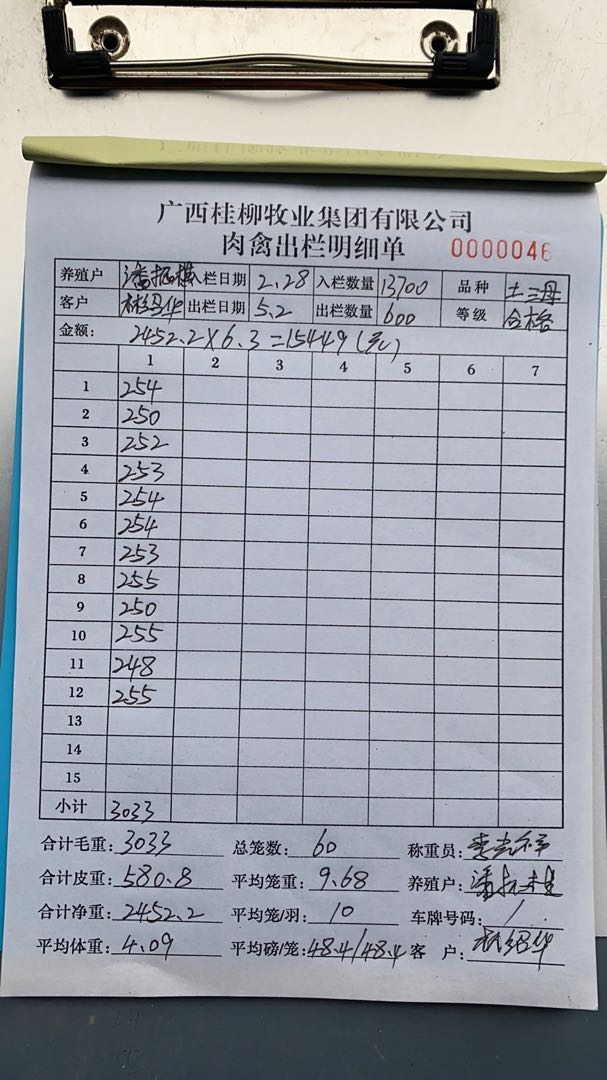 广西桂柳牧业集团有限公司
肉禽出栏明细单 0000046
养殖户 入栏日期 2.28 入栏数量 13700 品种 土三母
客户 林绍华 出栏日期 5.2 出栏数量 600 等级 合格
金额: 2452.2×6.3=15449(元)
1 2 3 4 5 6 7
1 254
2 250
3 252
4 253
5 254
6 254
7 253
8 255
9 250
10 255
11 248
12 255
13
14
15
小计 3033
合计毛重: 3033 总笼数: 60 称重员:
合计皮重: 580.8 平均笼重: 9.68 养殖户:
合计净重: 2452.2 平均笼/羽: 10 车牌号码: /
平均体重: 4.09 平均磅/笼: 48.4/48.4 客 户: 林绍华